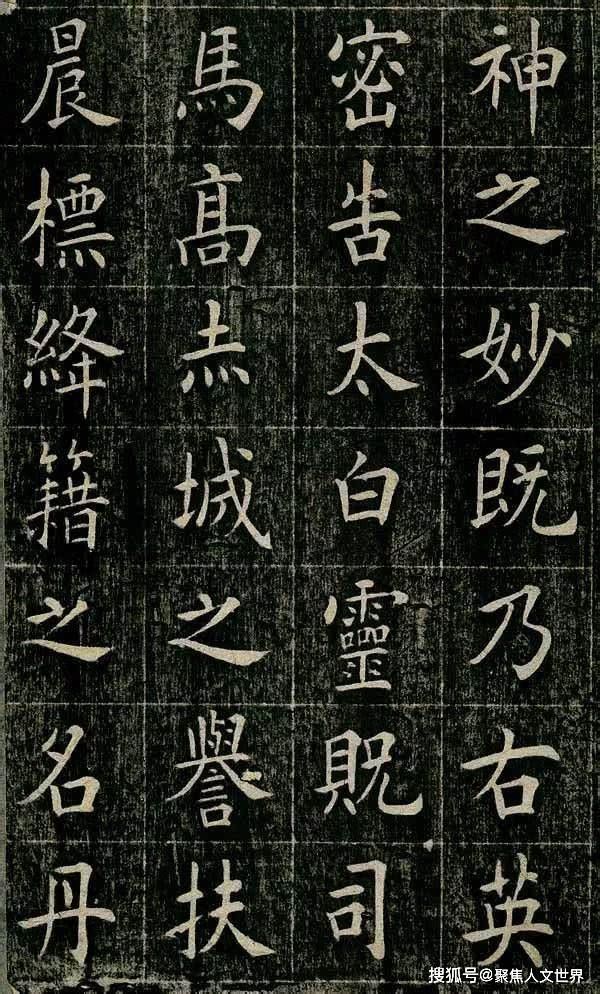 神之妙既乃右英
密告太白靈貺司
馬高赤城之譽扶
晨標絳籍之名丹
搜狐号@聚焦人文世界